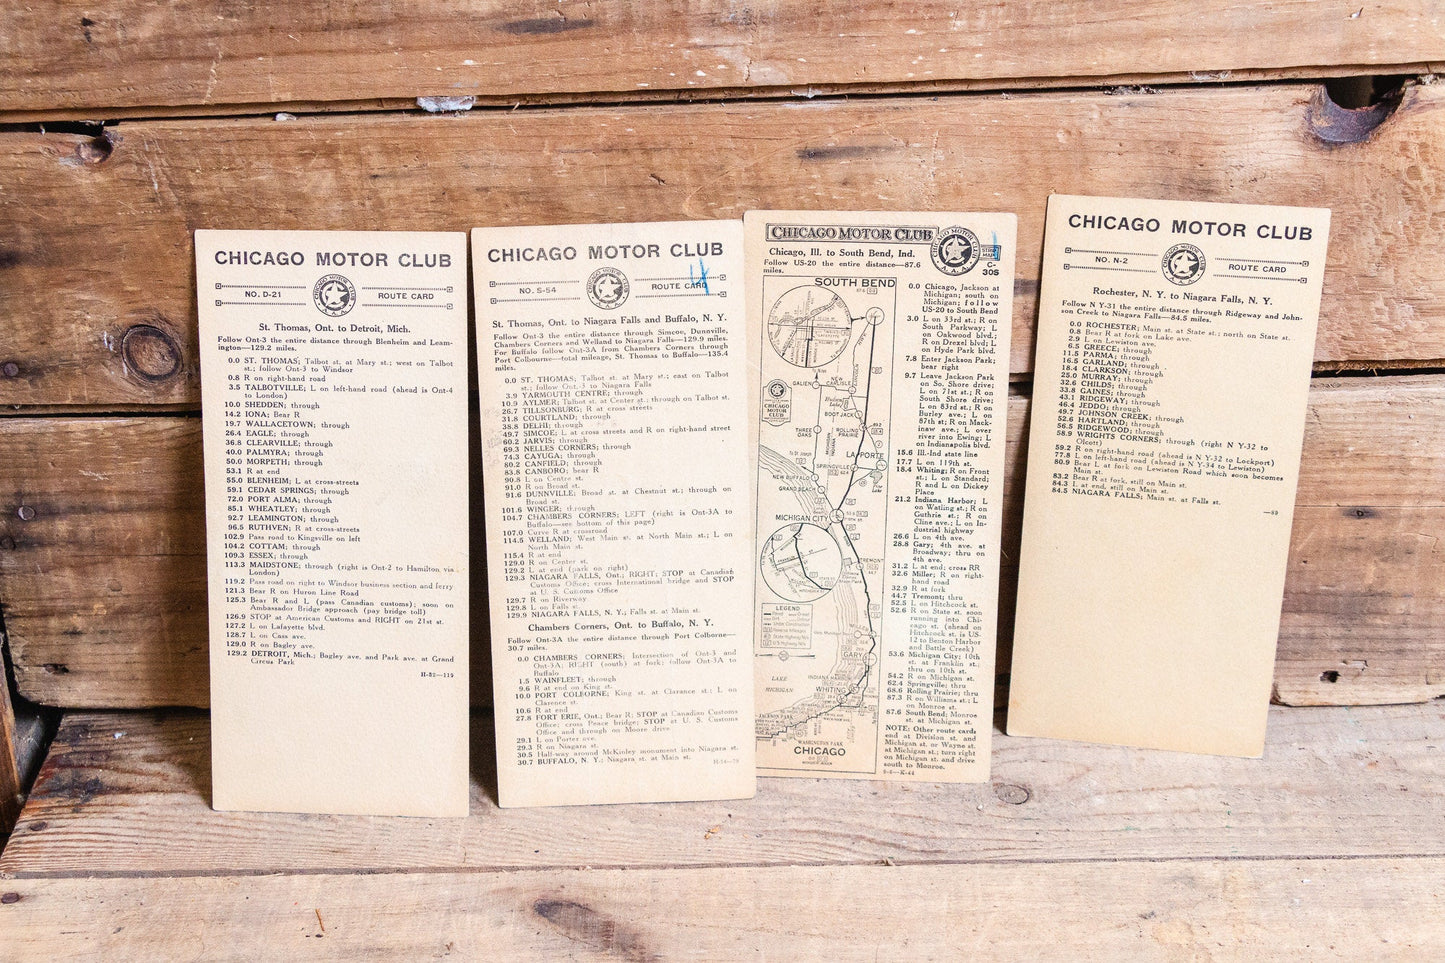 CHICAGO MOTOR CLUB
NO. D-21
CHICAGO MOTOR CLUB
A. A. A.
ROUTE CARD
St. Thomas, Ont. to Detroit, Mich.
Follow Ont-3 the entire distance through Blenheim and Leam-
ington—129.2 miles.
0.0 ST. THOMAS; Talbot st. at Mary st.; west on Talbot
st.; follow Ont-3 to Windsor
0.8 R on right-hand road
3.5 TALBOTVILLE; L on left-hand road (ahead is Ont-4
to London)
10.0 SHEDDEN; through
14.2 IONA; Bear R
19.7 WALLACETOWN; through
26.4 EAGLE; through
36.8 CLEARVILLE; through
40.0 PALMYRA; through
50.0 MORPETH; through
53.1 R at end
55.0 BLENHEIM; L at cross-streets
59.1 CEDAR SPRINGS; through
72.0 PORT ALMA; through
85.1 WHEATLEY; through
92.7 LEAMINGTON; through
96.5 RUTHVEN; R at cross-streets
102.9 Pass road to Kingsville on left
104.2 COTTAM; through
109.3 ESSEX; through
113.3 MAIDSTONE; through (right is Ont-2 to Hamilton via
London)
119.2 Pass road on right to Windsor business section and ferry
121.3 Bear R on Huron Line Road
125.3 Bear R and L (pass Canadian customs); soon on
Ambassador Bridge approach (pay bridge toll)
126.9 STOP at American Customs and RIGHT on 21st st.
127.2 L on Lafayette blvd.
128.7 L on Cass ave.
129.0 R on Bagley av.
129.2 DETROIT, Mich.; Bagley ave. and Park ave. at Grand
Circus Park
H-82—119
CHICAGO MOTOR CLUB
NO. S-54
ROUTE CARD
St. Thomas, Ont. to Niagara Falls and Buffalo, N. Y.
Follow Ont-3 the entire distance through Simcoe, Dunnville,
Chambers Corners and Welland to Niagara Falls—129.9 miles.
For Buffalo follow Ont-3A from Chambers Corners through
Port Colbourne—total mileage, St. Thomas to Buffalo—135.4
miles.
0.0 ST. THOMAS; Talbot st. at Mary st.; east on Talbot
st.; follow Ont-3 to Niagara Falls
3.9 YARMOUTH CENTRE; through
10.9 AYLMER; Talbot st. at Center st.; through on Talbot st.
26.7 TILLSONBURG; R at cross streets
31.8 COURTLAND; through
38.8 DELHI; through
49.7 SIMCOE; L at cross streets and R on right-hand street
60.2 JARVIS; through
69.3 NELLES CORNERS; through
74.3 CAYUGA; through
80.2 CANFIELD; through
83.8 CANBORO; bear R
90.8 L on Centre st.
91.0 R on Broad st.
91.6 DUNNVILLE; Broad st. at Chestnut st.; through on
Broad st.
101.6 WINGER; through
104.7 CHAMBERS CORNERS; LEFT (right is Ont-3A to
Buffalo—see bottom of this page)
107.0 Curve R at crossroad
114.5 WELLAND; West Main st. at North Main st.; L on
North Main st.
115.4 R at end
129.0 R on Center st.
129.2 L at end (park on right)
129.3 NIAGARA FALLS, Ont.; RIGHT; STOP at Canadian
Customs Office; cross International bridge and STOP
at U. S. Customs Office
129.7 R on Riverway
129.8 L on Falls st.
129.9 NIAGARA FALLS, N. Y.; Falls st. at Main st.
Chambers Corners, Ont. to Buffalo, N. Y.
Follow Ont-3A the entire distance through Port Colborne—
30.7 miles.
0.0 CHAMBERS CORNERS; Intersection of Ont-3 and
Ont-3A; RIGHT (south) at fork; follow Ont-3A to
Buffalo
1.5 WAINFLEET; through
9.6 R at end on King st.
10.0 PORT COLBORNE; King st. at Clarence st.; L on
Clarence st.
10.6 R at end
27.8 FORT ERIE, Ont.; Bear R; STOP at Canadian Customs
Office; cross Peace bridge; STOP at U. S. Customs
Office and through on Moore drive
29.1 L on Porter ave.
29.3 R on Niagara st.
30.5 Half-way around McKinley monument into Niagara st.
30.7 BUFFALO, N. Y.; Niagara st. at Main st.
CHICAGO MOTOR CLUB
Chicago, Ill. to South Bend, Ind.
Follow US-20 the entire distance—87.6
miles.
CHICAGO MOTOR CLUB
A.A.A.
STRIP MAPS
C-
30S
SOUTH BEND
GALIEN
NEW CARLISLE
Hudson Lake
BOOT JACK
THREE OAKS
ROLLING PRAIRIE
LA PORTE
SPRINGVILLE
NEW BUFFALO
GRAND BEACH
MICHIGAN CITY
TREMONT
LEGEND
MILLER
GARY
INDIANA HARBOR
WHITING
LAKE
MICHIGAN
JACKSON PARK
WASHINGTON PARK
CHICAGO
0.0 Chicago, Jackson at
Michigan; south on
Michigan; follow
US-20 to South Bend
3.0 L on 33rd st.; R on
South Parkway; L
on Oakwood blvd.;
R on Drexel blvd.; L
on Hyde Park blvd.
7.8 Enter Jackson Park;
bear right
9.7 Leave Jackson Park
on So. Shore drive;
L on 71st st.; R on
South Shore drive;
L on 83rd st.; R on
Burley ave.; L on
87th st; R on Mack-
inaw ave.; L over
river into Ewing; L on
Indianapolis blvd.
15.6 Ill.-Ind state line
17.7 L on 119th st.
18.4 Whiting; R on Front
st.; L on Standard;
R and L on Dickey
Place
21.2 Indiana Harbor; L
on Watling st.; R on
Guthrie st.; R on
Cline ave.; L on In-
dustrial highway
26.6 L on 4th ave.
28.8 Gary; 4th ave. at
Broadway; thru on
4th ave.
31.2 L at end; cross RR
32.6 Miller; R on right-
hand road
32.9 R at fork
44.7 Tremont; thru
52.5 L on Hitchcock st.
52.6 R on State st. soon
running into Chi-
cago st. (ahead on
Hitchcock st. is US-
12 to Benton Harbor
and Battle Creek)
53.6 Michigan City; 10th
st. at Franklin st.;
thru on 10th st.
54.2 R on Michigan st.
62.4 Springville; thru
68.6 Rolling Prairie; thru
87.3 R on Williams st.; L
on Monroe st.
87.6 South Bend; Monroe
st. at Michigan st.
NOTE: Other route cards
end at Division st. and
Michigan st. or Wayne st.
at Michigan st.; turn right
on Michigan st. and drive
south to Monroe.
CHICAGO MOTOR CLUB
NO. N-2
ROUTE CARD
Rochester, N. Y. to Niagara Falls, N. Y.
Follow N Y-31 the entire distance through Ridgeway and John-
son Creek to Niagara Falls—84.5 miles.
0.0 ROCHESTER; Main st. at State st.; north on State st.
0.8 Bear R at fork on Lake ave.
2.9 L on Lewiston ave.
6.5 GREECE; through
11.5 PARMA; through
16.5 GARLAND; through
18.4 CLARKSON; through
25.0 MURRAY; through
32.6 CHILDS; through
33.8 GAINES; through
43.1 RIDGEWAY; through
46.4 JEDDO; through
49.7 JOHNSON CREEK; through
52.6 HARTLAND; through
56.5 RIDGEWOOD; through
58.9 WRIGHTS CORNERS; through (right N Y-32 to
Olcott)
59.2 R on right-hand road (ahead is N Y-32 to Lockport)
77.8 L on left-hand road (ahead is N Y-34 to Lewiston)
80.9 Bear L at fork on Lewiston Road which soon becomes
Main st.
83.2 Bear R at fork, still on Main st.
84.3 L at end, still on Main st.
84.5 NIAGARA FALLS; Main st. at Falls st.
—89